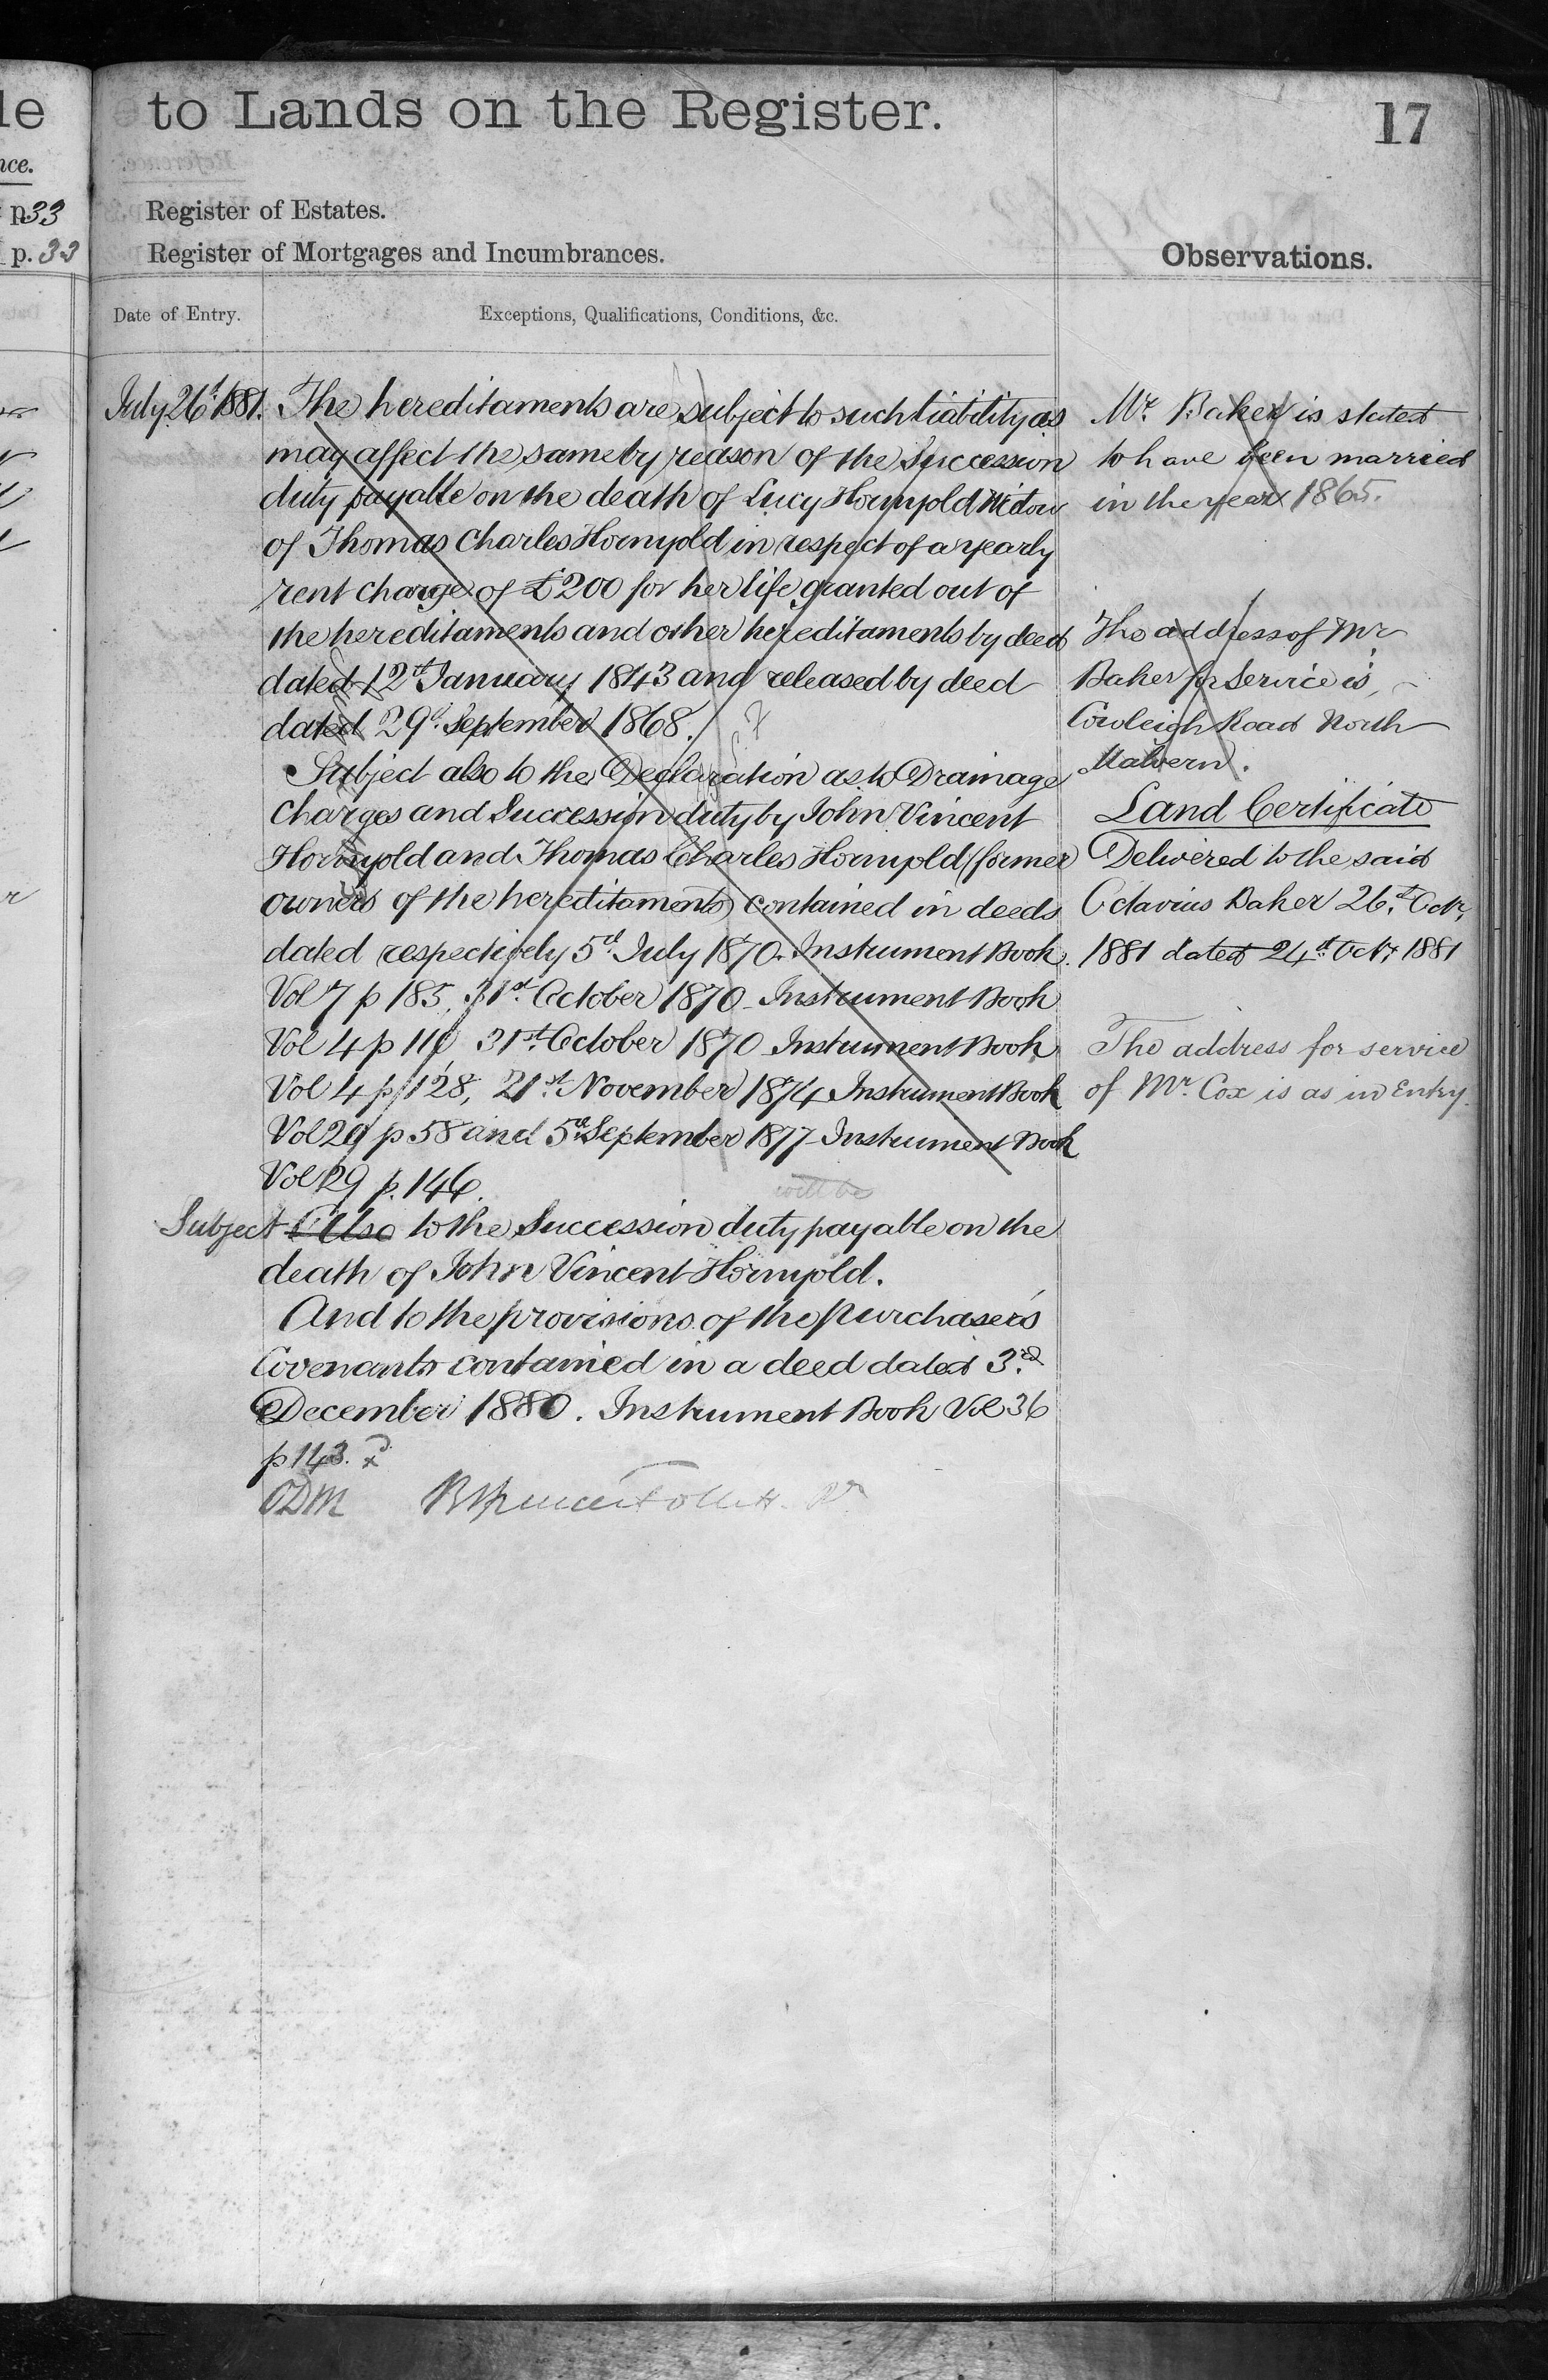 le
nce.
p. 33
p. 33
to Lands on the Register.
17
Register of Estates.
Register of Mortgages and Incumbrances.
Observations.
Date of Entry.
Exceptions, Qualifications, Conditions, &c.
July 26th 1881. The hereditaments are subject to such liability as
may affect the same by reason of the Succession
duty payable on the death of Lucy Hornyold Widow
of Thomas Charles Hornyold in respect of a yearly
rent charge of £200 for her life granted out of
the hereditaments and other hereditaments by deed
dated 12th January 1843 and released by deed
dated 29th September 1868.
Subject also to the Declaration as to Drainage
Charges and Succession duty by John Vincent
Hornyold and Thomas Charles Hornyold (former
owners of the hereditaments) contained in deeds
dated respectively 5th July 1870. Instrument Book
Vol 7 p 185, 31st October 1870 Instrument Book
Vol 4 p 110, 31st October 1870 Instrument Book
Vol 4 p 128, 21st November 1874 Instrument Book
Vol 29 p 58 and 5th September 1877 Instrument Book
Vol 29 p. 146.
will be
Subject Also to the Succession duty payable on the
death of John Vincent Hornyold.
And to the provisions of the purchaser's
Covenants contained in a deed dated 3rd
December 1880. Instrument Book Vol 36
p 143.
ODM
Mr. Baker is stated
to have been married
in the year 1865.
The address of Mr
Baker for Service is,
Cowleigh Road North
Malvern.
Land Certificate
Delivered to the said
Octavius Baker 26th Octr.
1881 dated 24th Octr 1881
The address for service
of Mr. Cox is as in Entry.